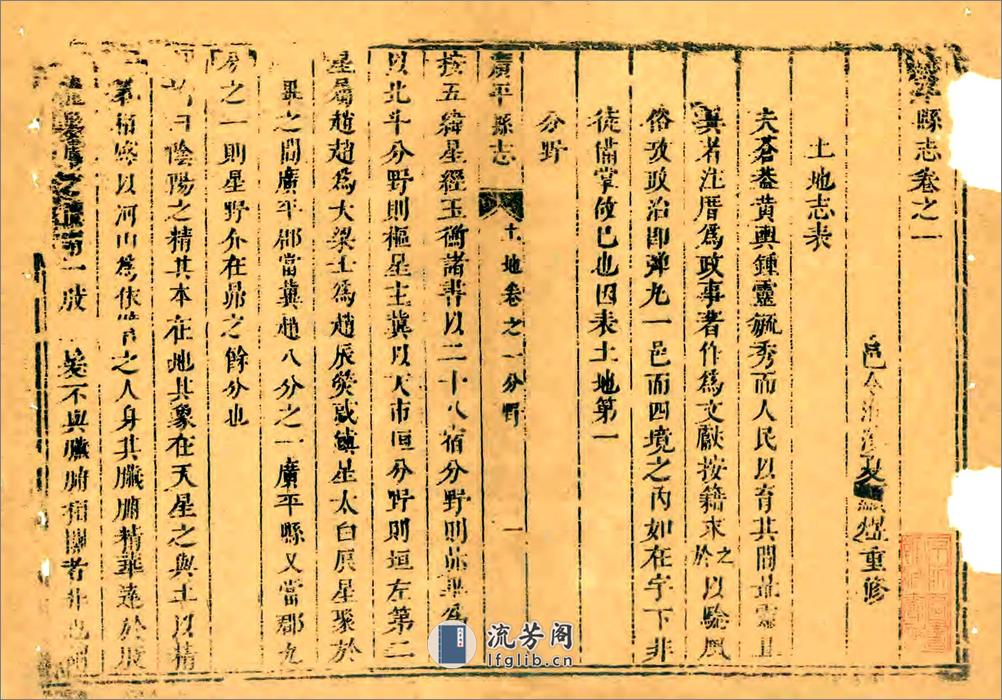 平縣志卷之一
邑令夏顯煜重修
土地志表
夫蒼蒼黃輿鍾靈毓秀而人民以育其間
者注厝爲政事著作爲文獻按籍求之於以驗風
俗攷政治即弹丸一邑而四境之內如在宇下非
徒備掌故已也因表土地第一
分野
廣平縣志
土地卷之一分野
一
按五緯星經玉衡諸書以二十八宿分野則昴畢爲
以北斗分野則樞星主冀以天市垣分野則垣左第二
星屬趙趙爲大梁士爲趙辰熒惑鎮星太白辰星聚於
畢之間廣平郡當冀趙八分之一廣平縣又當郡九
分之一則星野介在昴之餘分也
曰陰陽之精其本在地其象在天星之與土以精
以河山爲依之人身其臟腑精華達於
一髮不與臟腑相關者非也
流芳阁
lfglib.cn